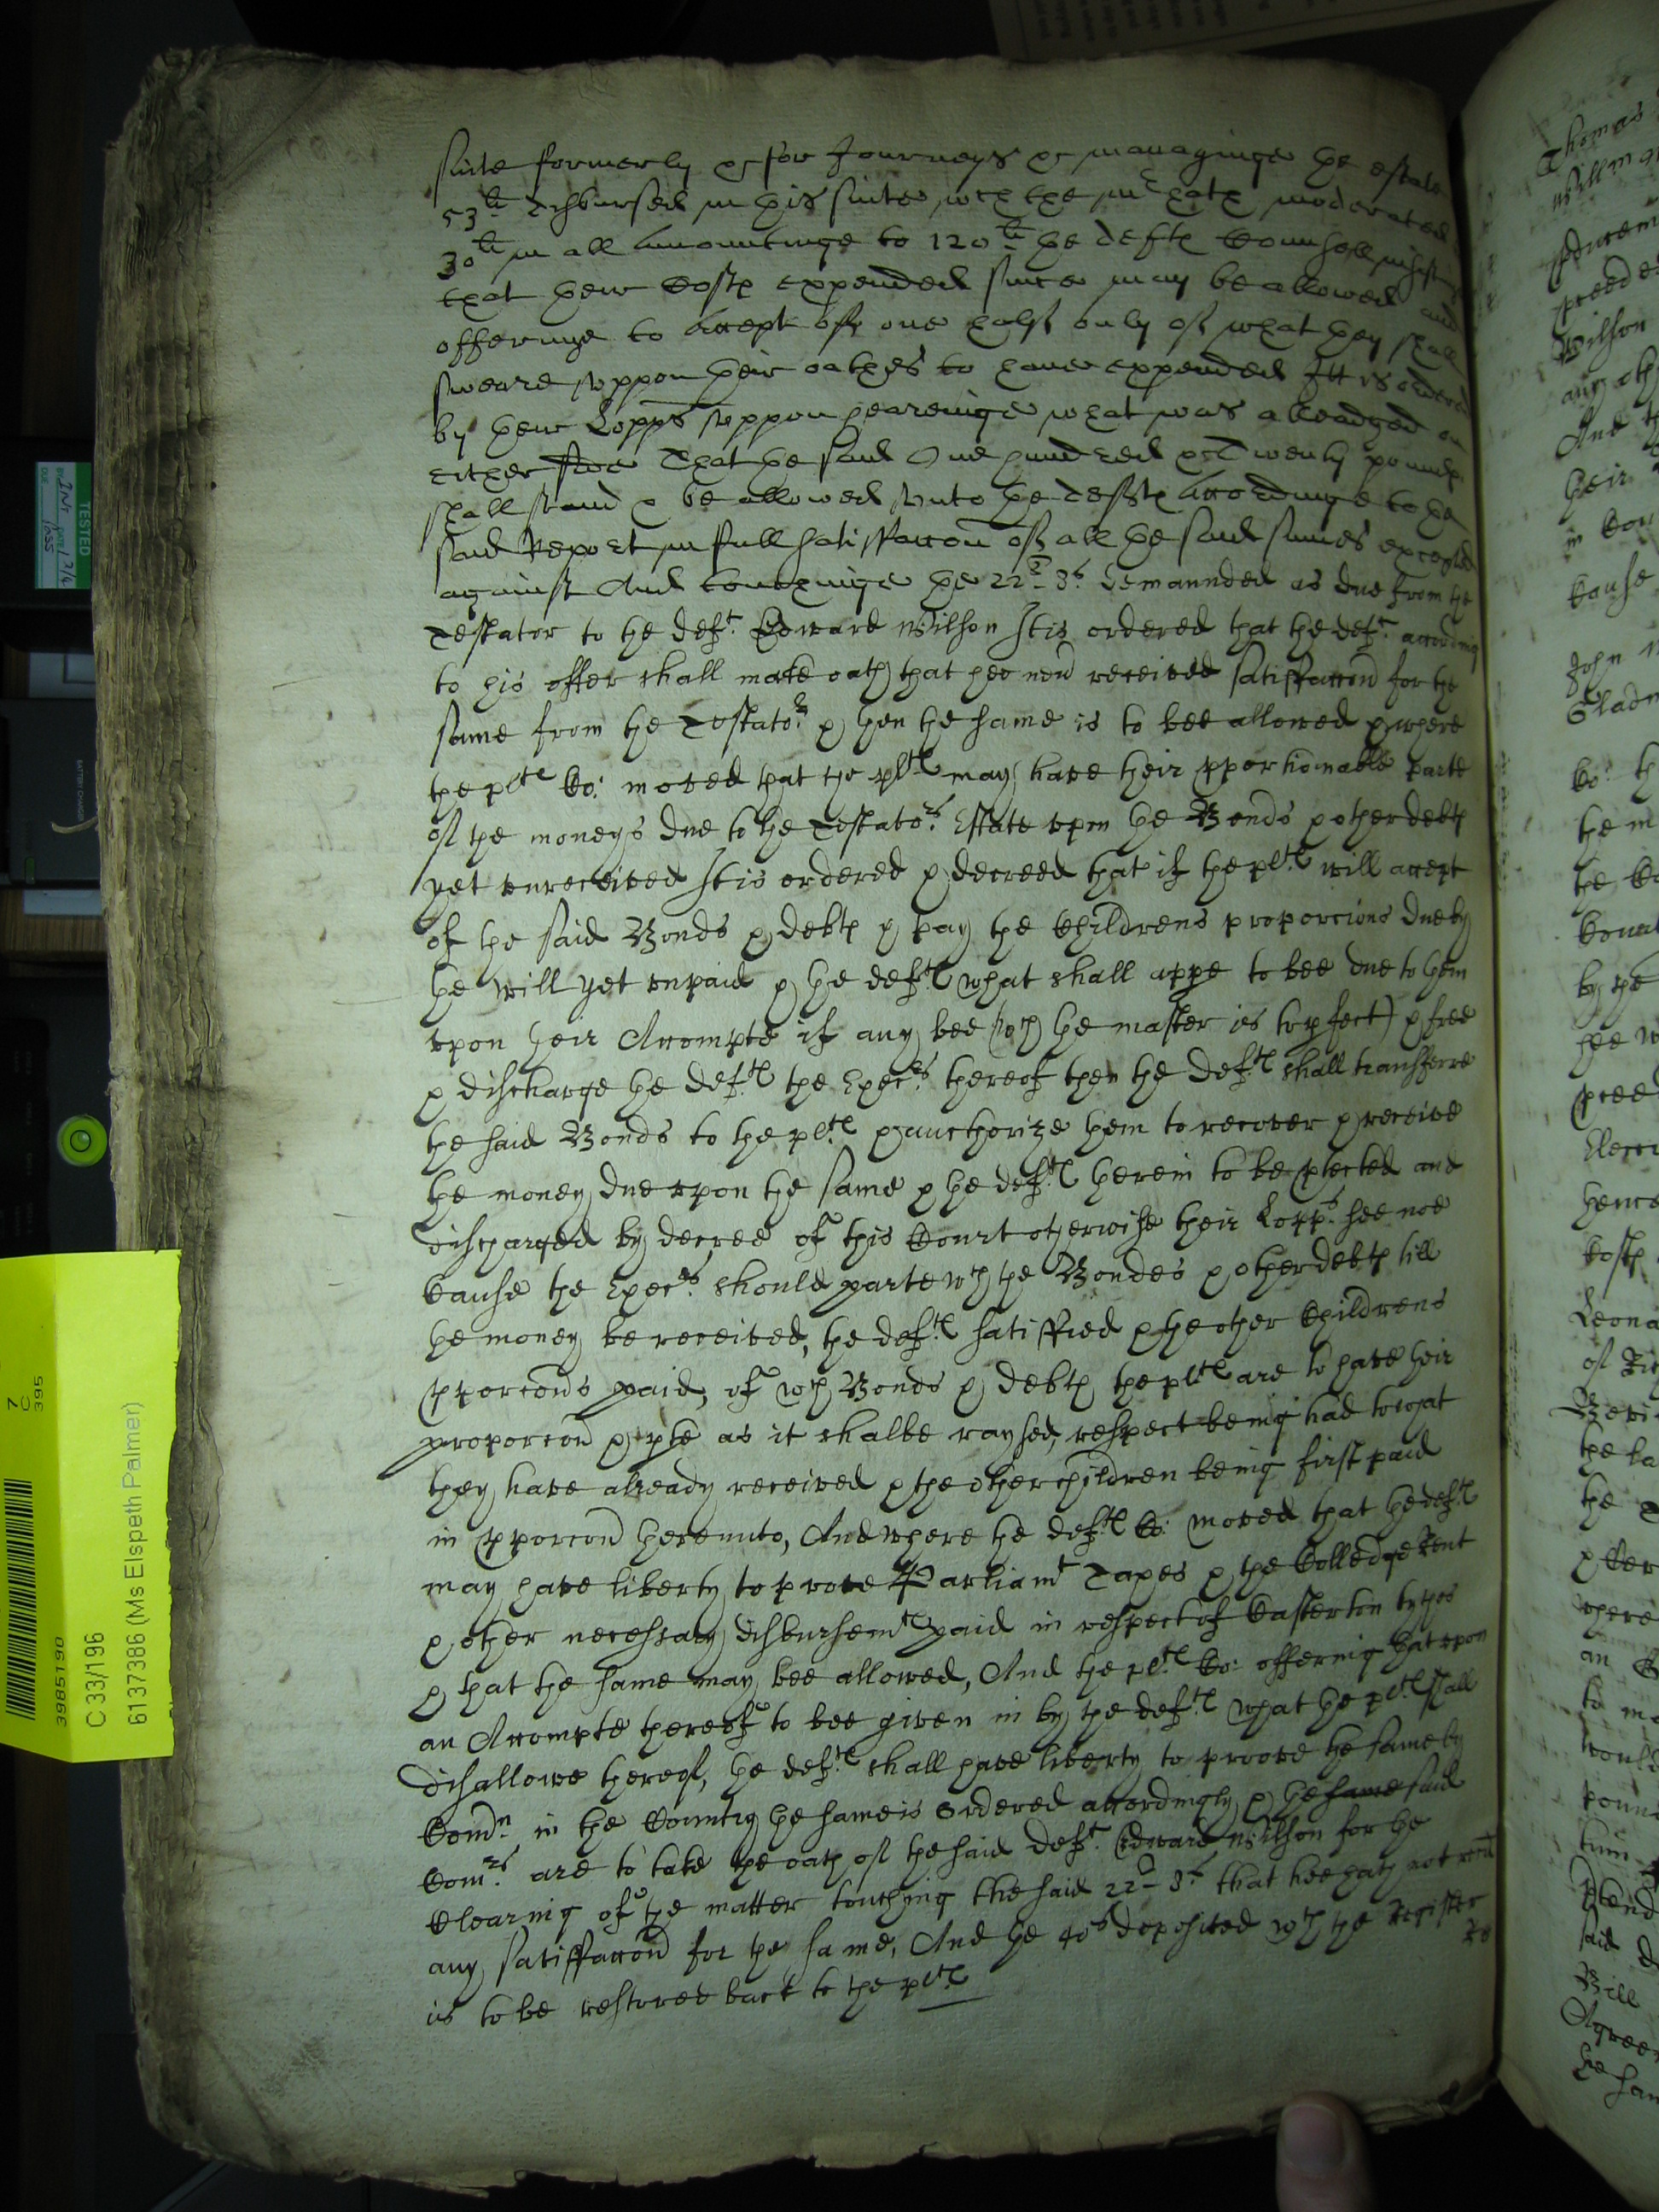 suite formerly & for Journeys & managinge the estate
53li disbursed in this suite wch the mr hath moderated
30li in all amountinge to 120li the defts Counsell insisting
that their Costs expended since may be allowed and
offeringe to accept of one halfe only of what they shall
sweare uppon their oathes to have expended Itt is ordered
by their Lopps uppon heareinge what was alleadged on
either side That the said One hundred & Twenty pounds
shall stand & be allowed unto the defts accordinge to the
said Report in full satisfaccon of all the said sumes excepted
against And touchinge the 22li 8s demaunded as due from the
Testator to the deft Edward Wilson It is ordered that the deft according
to his offer shall make oath that hee nevr received satisfaccon for the
same from the Testator & then the same is to bee allowed & where
the plts Co: moved that the plts may have their pporhionable parte
of the moneys due to the Testators Estate upon the Bonds & other debts
yet unreceived It is ordered & decreed that if the plts will accept
of the said Bonds & debts & pay the Childrens proporcions due by
the will yet unpaid & the defts what shall appe to bee due to them
upon their Accompte if any bee (wch the master is to pfect) & free
& discharge the defts the Execrs thereof then the defts shall transferre
the said Bonds to the plts & aucthorize them to recover & receive
the money due upon the same & the defts therein to be ptected and
discharged by decree of this Court otherwise their Lopps see noe
cause the Execrs should parte wth the Bondes & other debts till
the money be received, the defts satisfied & the other Childrens
pporcons paid, of wch Bonds & debts the plts are to have their
proporcon & pte as it shalbe raysed, respect being had to what
they have already received & the other children being first paid
in pporcon thereunto, And where the defts Co: moved that the defts
may have liberty to prove Parliamt Taxes & the Colledge Rent
& other necessary disbursemts paid in respect of Casterton tythes
& that the same may bee allowed, And the plts Co: offering that upon
an Accompte thereof to bee given in by the defts what the plts shall
disallowe thereof, the defts shall have liberty to proove the same by
Comn in the Country the same is Ordered accordingly & the same said
Comrs are to take the oath of the said deft Edward Wilson for the
Clearing of the matter touching the said 22li 8s that hee hath not recd
any satisfaccon for the same, And the 40s deposited wth the Register
is to be restored back to the plts
TESTED
BATTERY CHARGER
7
C
395
3985190
C 33/196
6137386 (Ms Elspeth Palmer)
Thomas
Wilson
any oth
And th
their
in Cou
Cause
John
the m
by the
hence
Costs
the la
where
an
said
Bill
Agree